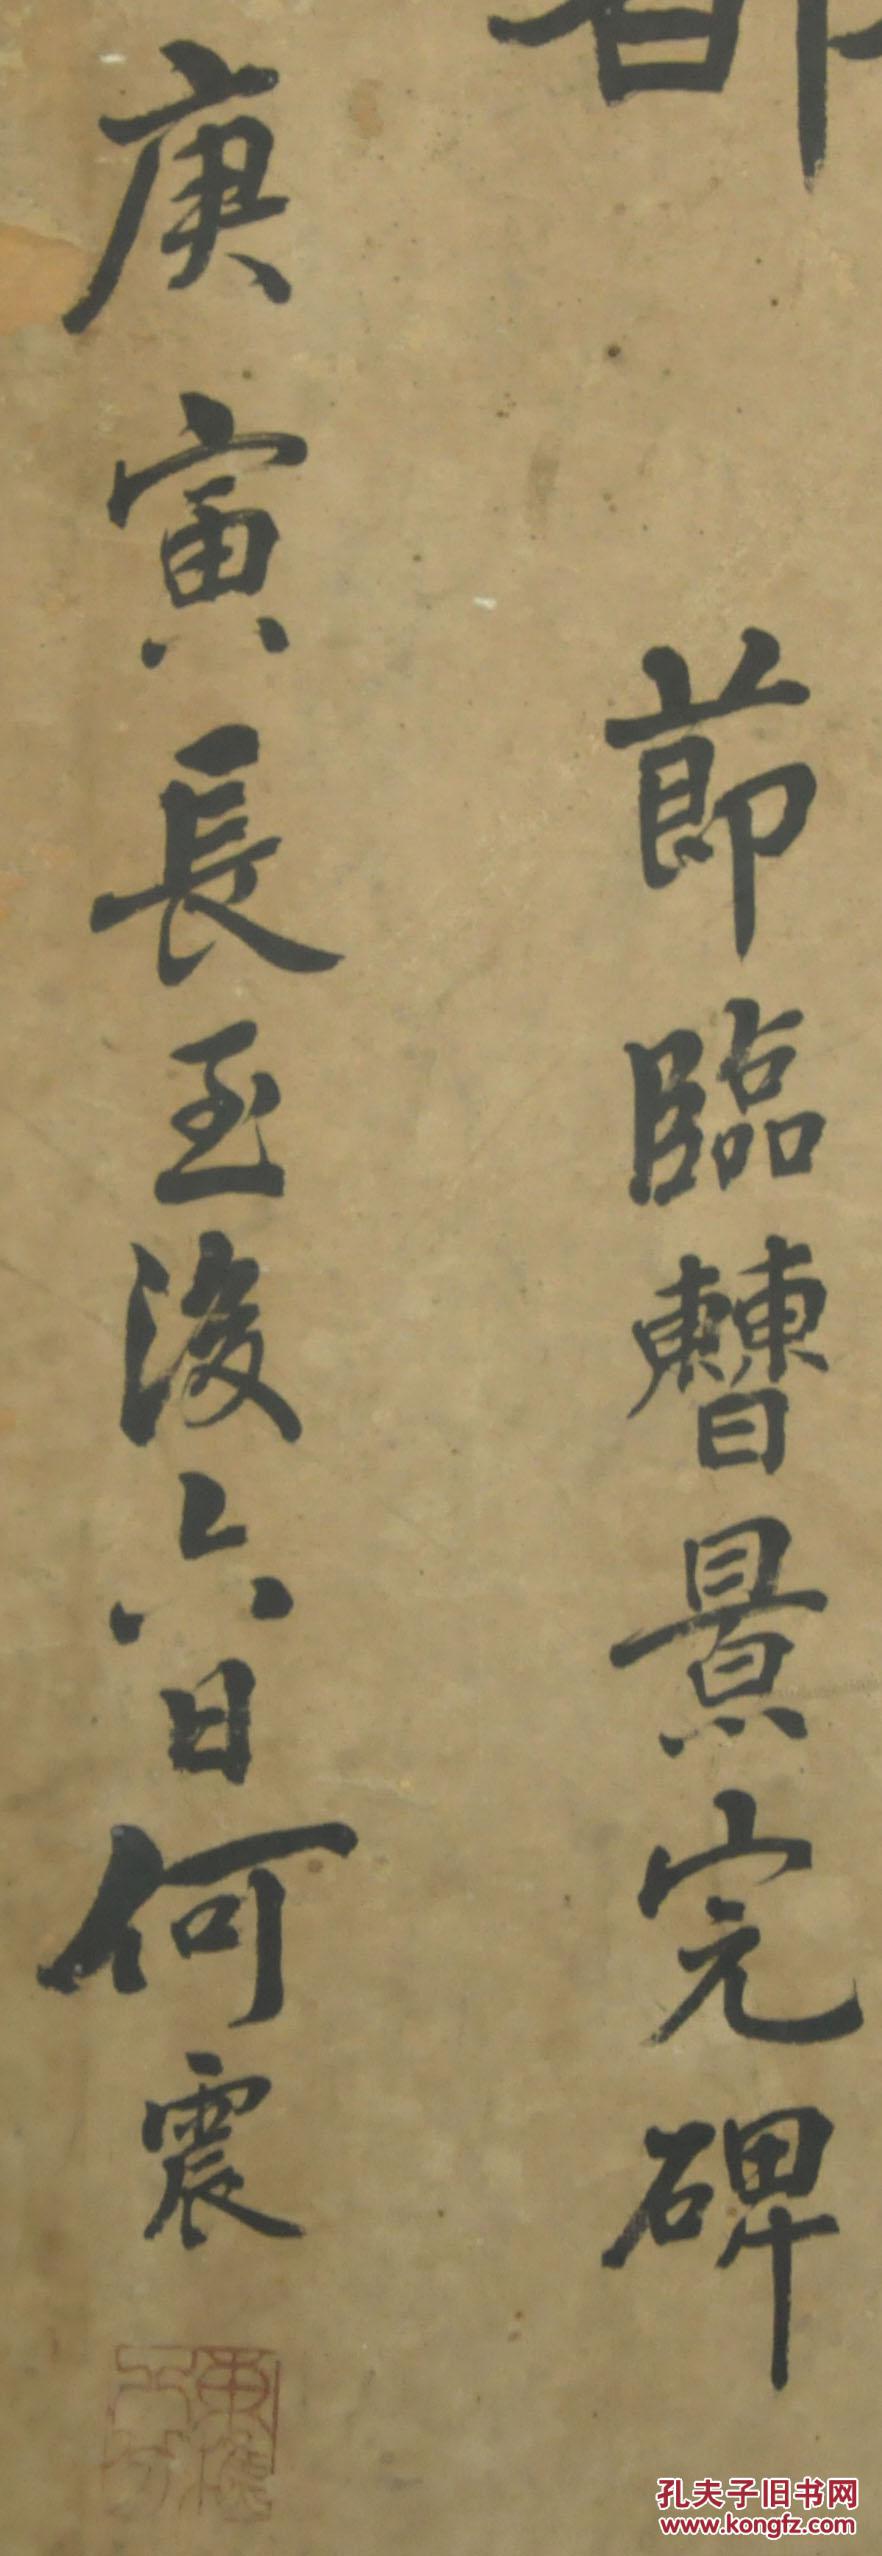 節臨𣍘景完碑
庚寅長至後六日何震
孔夫子旧书网
www.kongfz.com